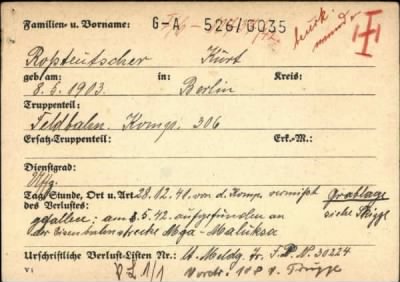 Familien- u. Vorname: G-A 526/0035
Roßteutscher Kurt
geb/am: in: Kreis:
8.5.1903. Berlin
Truppenteil:
Feldbahn. Komp. 306
Ersatz-Truppenteil: Erk.-M.:
Dienstgrad:
Uffz.
Tag, Stunde, Ort u. Art 28.02.4 . von d. Komp. vermißt Grablage
des Verlustes: siehe
gefallen: am 8.5.42. aufgefunden an
der Eisenbahnstrecke Mga-Maluksa
Urschriftliche Verlust-Listen Nr.: lt. Meldg. Fr. F.P.N. 30224
V1 1/1